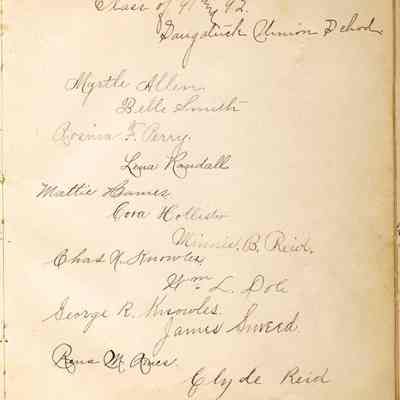 Class of 91 & 92.
Saugatuck Union School
Myrtle Allen
Belle Smith
Rosina F. Perry.
Lena Randall
Mattie Barnes
Cora Hollister
Minnie. B. Reid.
Chas N. Knowles
Wm L. Dole
George R. Knowles.
James Sweed
M.
Clyde Reid